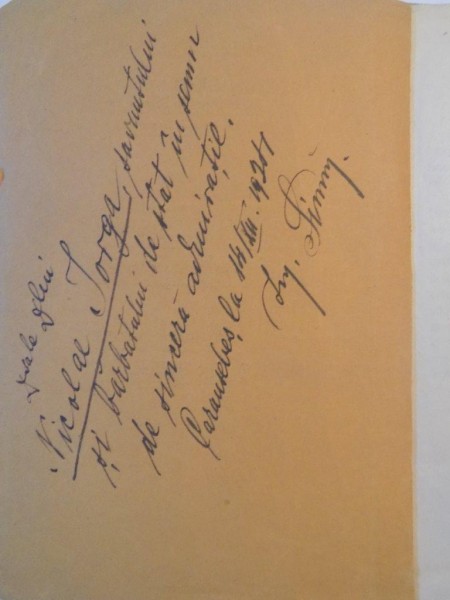 D-sale D-lui
Nicolae Iorga, savantului
și bărbatului de stat în semn
de sinceră admirație.
Caransebeș, la 14/XII. 1931
Ing.